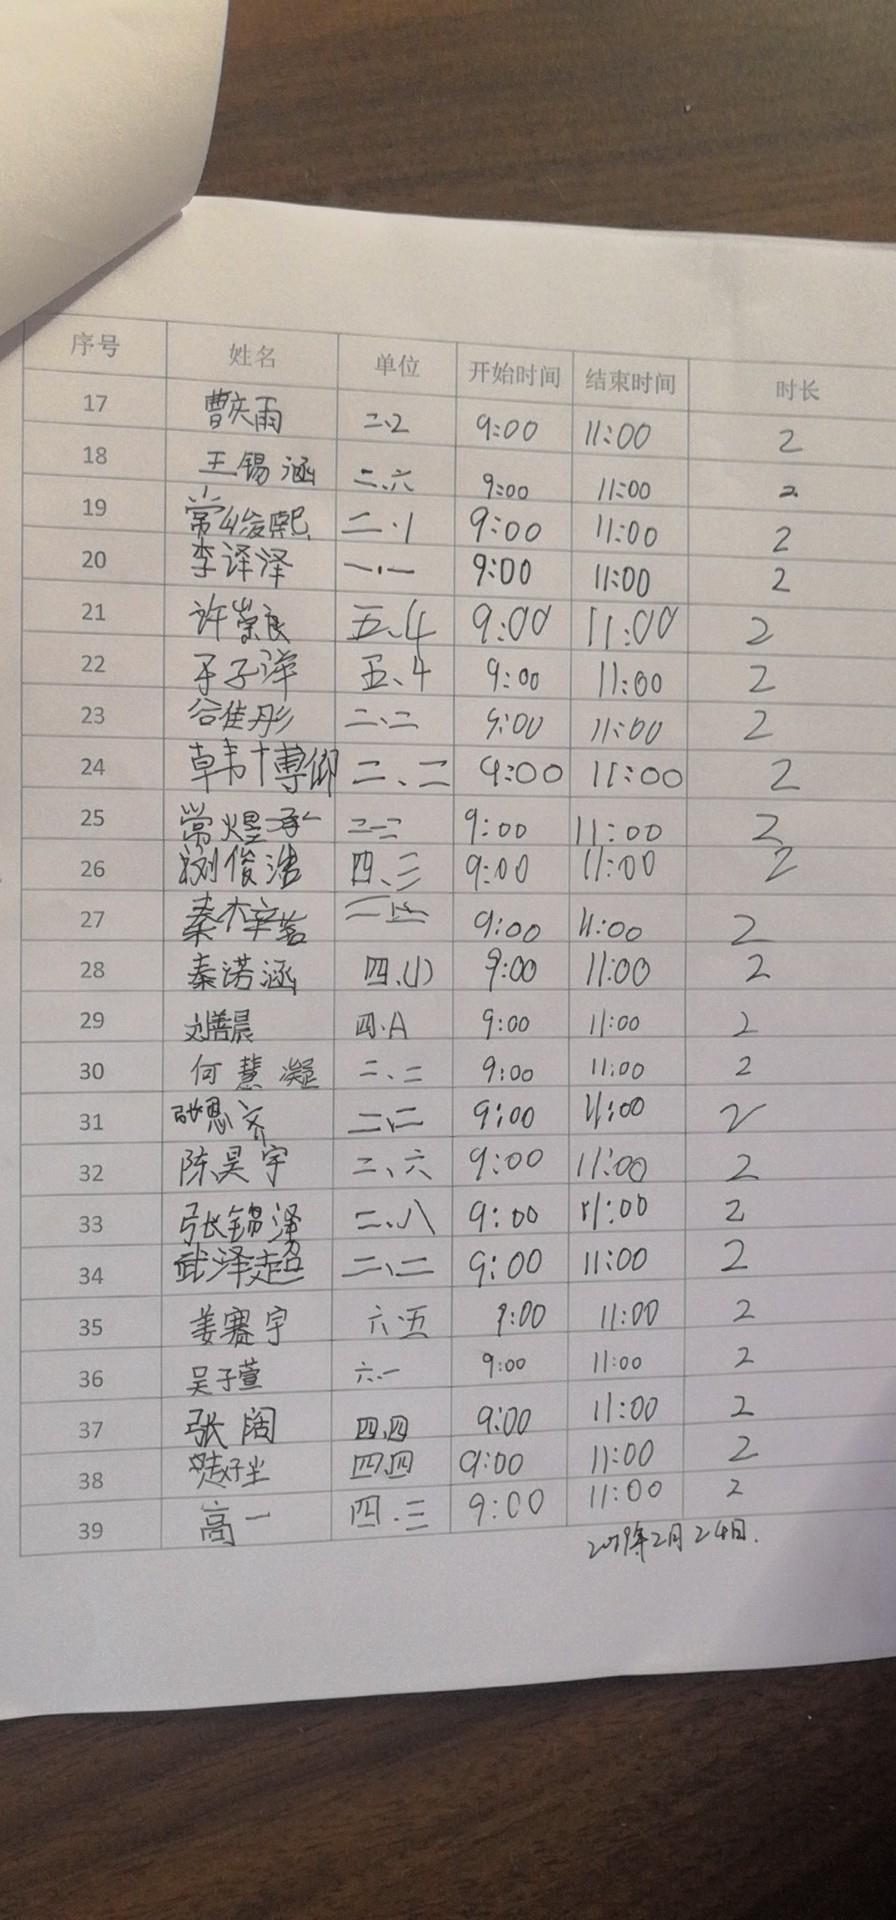 序号 姓名 单位 开始时间 结束时间 时长
17 曹天雨 二、2 9:00 11:00 2
18 王锡涵 二、六 9:00 11:00 2
19 常峻熙 二、1 9:00 11:00 2
20 李译泽 一、一 9:00 11:00 2
21 许崇良 五、4 9:00 11:00 2
22 于子洋 五、4 9:00 11:00 2
23 谷佳彤 二、二 9:00 11:00 2
24 韩博仰 二、二 9:00 11:00 2
25 常煜承 二、二 9:00 11:00 2
26 刘俊浩 四、三 9:00 11:00 2
27 秦梓茗 9:00 11:00 2
28 秦诺涵 四.(1) 9:00 11:00 2
29 刘善晨 四.A 9:00 11:00 2
30 何慧凝 二、二 9:00 11:00 2
31 张恩齐 二、二 9:00 11:00 2
32 陈昊宇 二、六 9:00 11:00 2
33 张锦泽 二、八 9:00 11:00 2
34 武泽超 二、二 9:00 11:00 2
35 姜赛宇 六·五 9:00 11:00 2
36 吴子萱 六.一 9:00 11:00 2
37 张阔 四.四 9:00 11:00 2
38 四.四 9:00 11:00 2
39 高一 四.三 9:00 11:00 2
2019年2月24日.